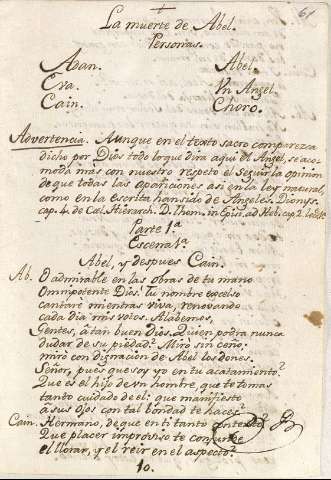 61
La muerte de Abel.
Personas.
Adan. Abel.
Eva. Vn Angel.
Cain. Choro.
Advertencia. Aunque en el texto sacro comparezca
dicho por Dios todo lo que dira aqui el Angel, se aco-
moda màs con nuestro respeto el seguir la opinion
de que todas las apariciones asi en la ley natural,
como en la Escrita han sido de Angeles. Dionys.
cap. 4. de Cæl. Hierarch. D. Thom. in Epist. ad Heb. cap. 2.
Parte 1ª
Escena 1ª
Abel, y despues Cain.
Ab. O admirable en las obras de tu mano
Omnipotente Dios. Tu nombre excelso
cantarè mientras viva, renovando
cada dia mis votos. Alabemos
Gentes, â tan buen Dios. Quien podra nunca
dudar de su piedad? Mirò sin ceño;
mirò con dignacion de Abel los dones.
Señor, pues que soy yo en tu acatamiento?
Que es el hijo de vn hombre, que tu tomas
tanto cuidado de el: que manifiesto
à sus ojos con tal bondad te haces?
Cain. Hermano, de que en ti tanto contento?
Que placer improviso te confunde
el llorar, y el reir en el aspecto?
Io.